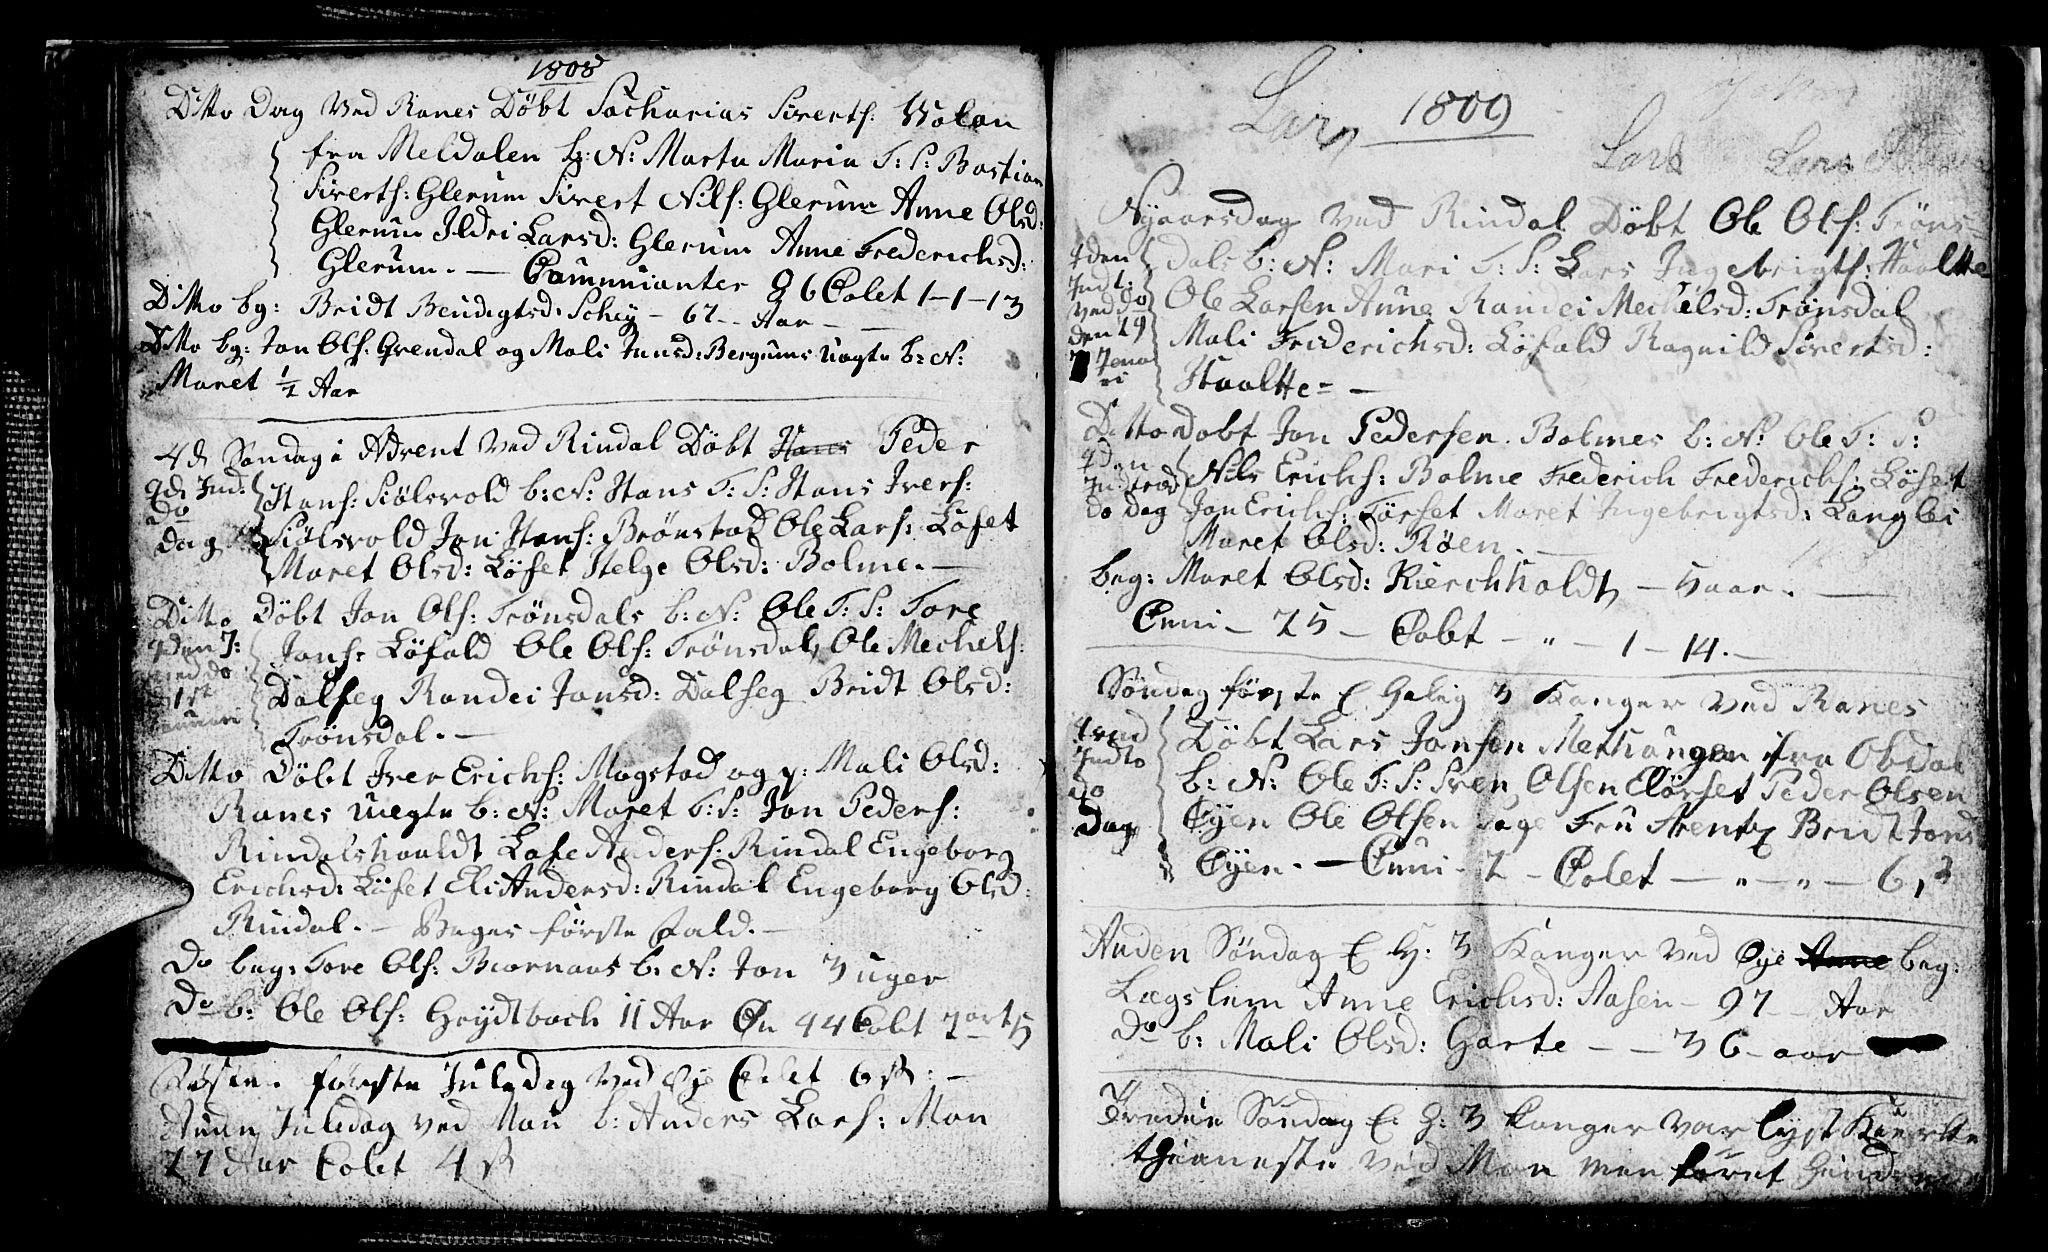 1808
Ditto Dag ved Ranes Døbt Sacharias Siverts: Volan
fra Meldalen b: N: Marta Maria F: S: Bastian
Siverts: Glerum Sivert Nils: Glerum Anne Olsd:
Glerum Ildri Larsd: Glerum Anne Frederichsd:
Glerum. — Communianter 86 Colet 1-1-13
Ditto bg: Bridt Bendigtsd: Schey - 67 - Aar -
Ditto bg: Jon Ols: Grendal og Mali Jonsd: Bergums uægte b: N:
Maret ½ Aar
4d Søndag i Advent ved Rindal Døbt Hans Peder
Hans: Siølsvold b: N: Hans F: S: Hans Ivers:
Siølsvold Jon Hans: Brønstad Ole Lars: Løset
Maret Olsd: Løset Helge Olsd: Bolme. —
qd Ind:
Do
Dag
Ditto Døbt Jon Ols: Trønsdals b: N: Ole F: S: Tore
Jons: Løfald Ole Ols: Trønsdal, Ole Mechels:
Dalseg Randei Jonsd: Dalseg Bridt Olsd:
Trønsdal. —
qden J:
ved do
1st
Ditto Døbt Iver Erichs: Mogstad og p: Mali Olsd:
Ranes uegte b: N: Maret F: S: Jon Peders:
Rindalshaaldt Lase Anders: Rindal Engeborg
Erichsd: Løset Eli Andersd: Rindal Engeborg Olsd:
Rindal. — Beges første Fald. —
Do beg: Tore Ols: Biørnaas b: N: Jon 3 uger
Do b: Ole Ols: Grydtbach 11 Aar 44 Colet 2 ort 5
første Juledag ved Øye Colet 6 β: —
Anden Juledag ved Mou b: Anders Lars: Mon
77 Aar Colet 4 β
Lars
1809
Lars Lars
Nyaarsdag ved Rindal Døbt Ole Ols: Trøns-
dals b: N: Mari F: S: Lars Ingebrigts: Haaltte
Ole Larsen Anne Randei Mechelsd: Trønsdal
Mali Friderichsd: Løfald Ragnild Sivertsd:
Haaltte - —
qden
Indt:
ved do
den 29
Jenua
ri
Ditto Døbt Jon Pedersen Bolmes b: N: Ole F: S:
Nils Erichs: Bolme Frederich Frederichs: Løset
Jon Erichs: Førset Maret Ingebrigtsd: Langlei
Maret Olsd: Røen. —
qden
Indtrod
do dag
beg: Maret Olsd: Kierchholdt — 5 aar. —
Cuni - 25 - Colet - " - 1 - 14. —
Søndag første E Helig 3 Konger ved Ranes
Døbt Lars Jonsen Methaugen ifra Opdal
b: N: Ole F: S: Sven Olsen Elørset Peder Olsen
Øyen Ole Olsen Fru Stentz Bridt Jonsd
Øyen. — Cuni - 2 - Colet — " — " — 6,2
Indto
do
Dag
Anden Søndag E H: 3 Konger ved Øye Anne beg:
Lægslem Anne Erichsd: Aasen - 97 - Aar
Do b: Mali Olsd: Garte - - 36 - aar
Tredie Søndag E: H: 3 Konger var lyst Kierke
thieneste ved Moe men føret hind